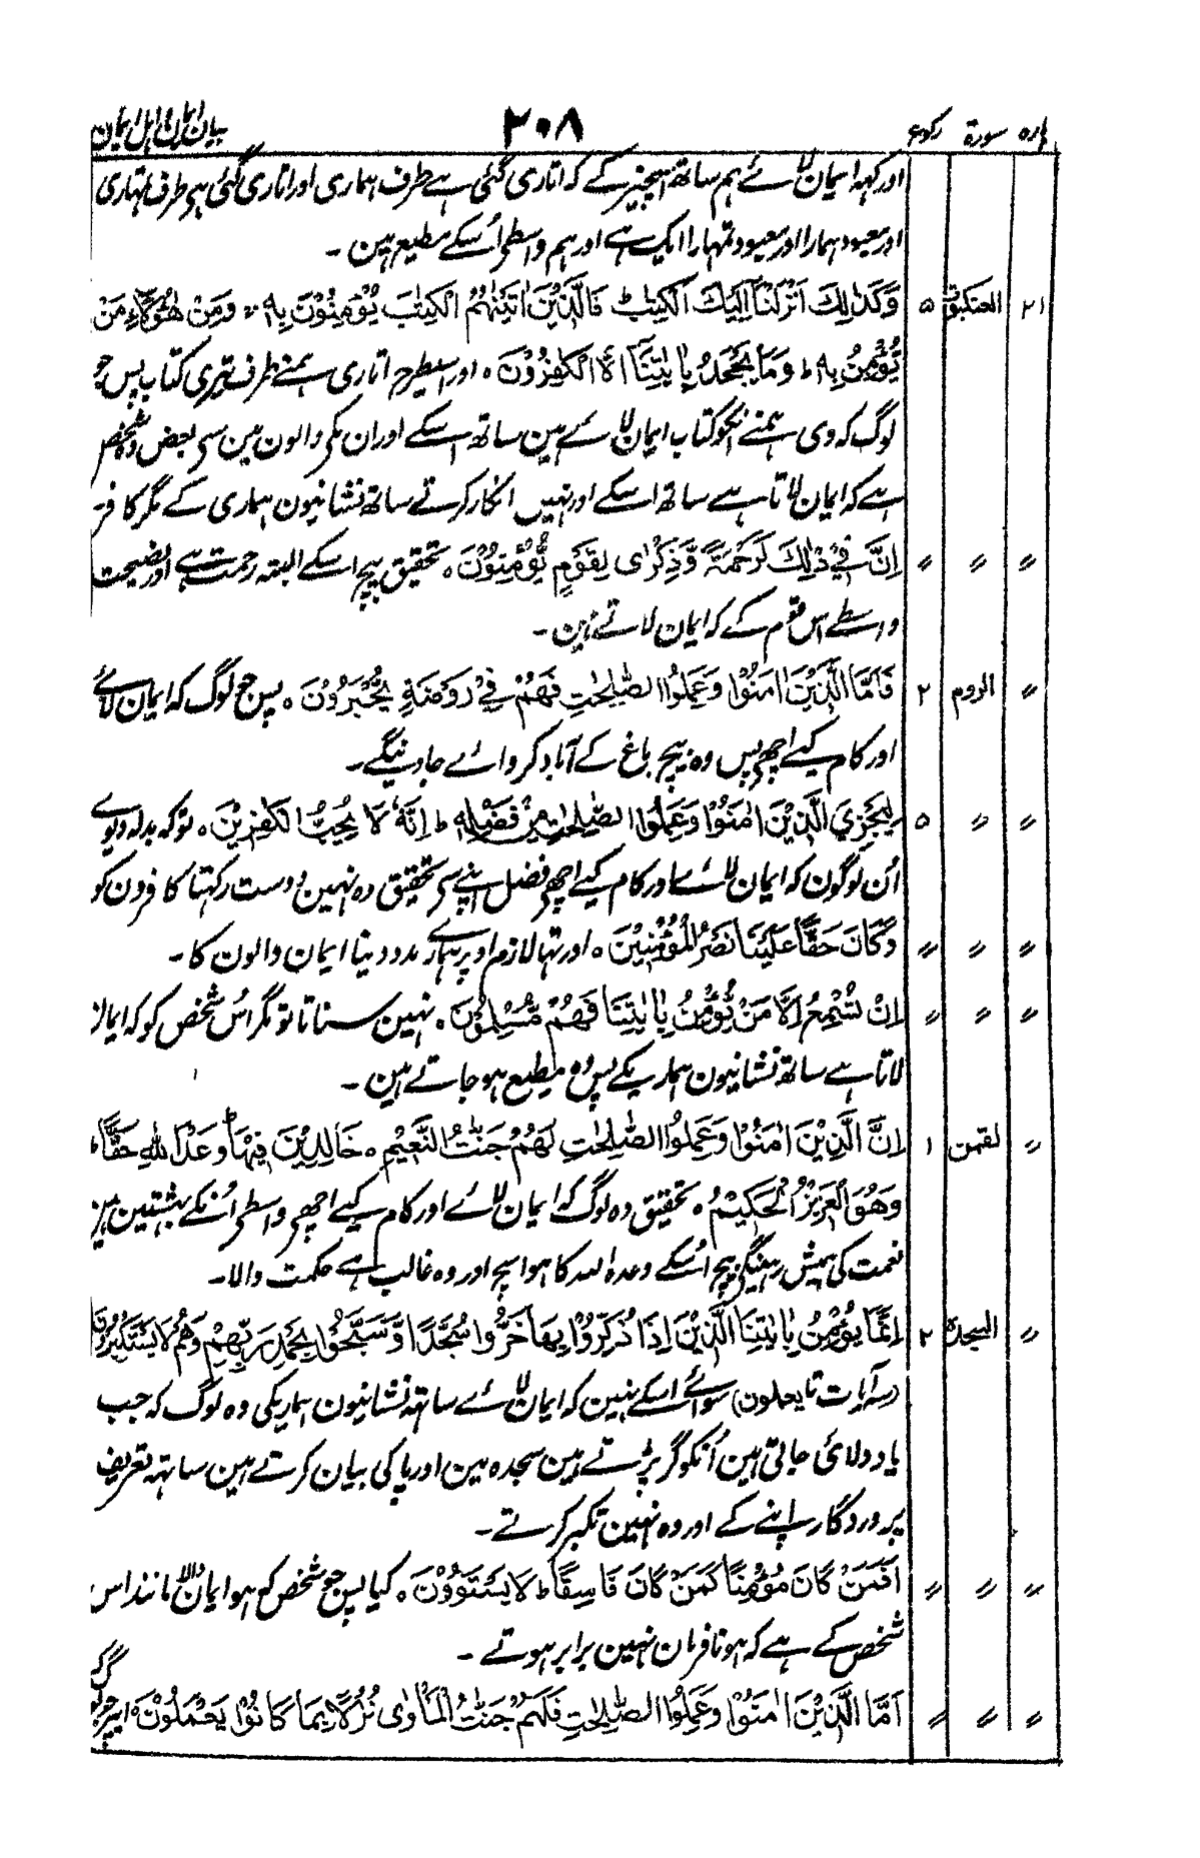 پارہ سورۃ رکوع ٢٠٨ بیان ایمان و اہل ایمان
اور کہہ ایمان لائے ہم ساتھ اسچیز کے کہ اتاری گئی ہے طرف ہماری اور اتاری گئی ہی طرف تمہاری
اور معبود ہمارا اور معبود تمہارا ایک ہے اور ہم واسطے اُسکے مطیع ہین ۔
٢١ العنکبوت ۵ وَكَذٰلِكَ اَنْزَلْنَاۤ اِلَيْكَ الْكِتٰبَ ؕ فَالَّذِيْنَ اٰتَيْنٰهُمُ الْكِتٰبَ يُؤْمِنُوْنَ بِهٖ ۚ وَمِنْ هٰٓؤُلَاۤءِ مَنْ
يُّؤْمِنُ بِهٖ ؕ وَمَا يَجْحَدُ بِاٰيٰتِنَاۤ اِلَّا الْكٰفِرُوْنَ ہ اور اسیطرح اتاری ہمنے طرف تیری کتاب پس جو
لوگ کہ دی ہمنے انکو کتاب ایمان لائے ہین ساتھ اسکے اور ان مکہ والون مین سی بعض وہ شخص
ہے کہ ایمان لاتا ہے ساتھ اسکے اور نہیں انکار کرتے ساتھ نشانیون ہماری کے مگر کافر
〃 〃 〃 اِنَّ فِيْ ذٰلِكَ لَرَحْمَةً وَّذِكْرٰى لِقَوْمٍ يُّؤْمِنُوْنَ ہ تحقیق بیچ اسکے البتہ رحمت ہے اور نصیحت
واسطے اس قوم کے کہ ایمان لاتے ہین ۔
〃 الروم ٢ فَاَمَّا الَّذِيْنَ اٰمَنُوْا وَعَمِلُوا الصّٰلِحٰتِ فَهُمْ فِيْ رَوْضَةٍ يُّحْبَرُوْنَ ہ پس جو لوگ کہ ایمان لائے
اور کام کیے اچھے پس وہ بیچ باغ کے آباد کروائے جاوینگے ۔
〃 〃 ۵ لِيَجْزِيَ الَّذِيْنَ اٰمَنُوْا وَعَمِلُوا الصّٰلِحٰتِ مِنْ فَضْلِهٖ ؕ اِنَّهٗ لَا يُحِبُّ الْكٰفِرِيْنَ ہ توکہ بدلہ دیوے
اُن لوگون کہ ایمان لائے اور کام کیے اچھے فضل اپنے سی تحقیق وہ نہین دوست رکہتا کافرون کو
〃 〃 〃 وَكَانَ حَقًّا عَلَيْنَا نَصْرُ الْمُؤْمِنِيْنَ ہ اور تہا لازم اوپر ہمارے مدد دینا ایمان والون کا ۔
〃 〃 〃 اِنْ تُسْمِعُ اِلَّا مَنْ يُّؤْمِنُ بِاٰيٰتِنَا فَهُمْ مُّسْلِمُوْنَ ہ نہین سناتا تو مگر اُس شخص کو کہ ایمان
لاتا ہے ساتھ نشانیون ہماریکے پس وہ مطیع ہو جاتے ہین ۔
〃 لقمن ١ اِنَّ الَّذِيْنَ اٰمَنُوْا وَعَمِلُوا الصّٰلِحٰتِ لَهُمْ جَنّٰتُ النَّعِيْمِ ہ خَالِدِيْنَ فِيْهَا ؕ وَعْدَ اللّٰهِ حَقًّا ؕ
وَهُوَ الْعَزِيْزُ الْحَكِيْمُ ہ تحقیق وہ لوگ کہ ایمان لائے اور کام کیے اچھے واسطے اُنکے بہشتین ہین
نعمت کی ہمیش رہینگے بیچ اُسکے وعدہ اللہ کا ہوا سچ اور وہ غالب ہے حکمت والا ۔
〃 السجدۃ ٢ اِنَّمَا يُؤْمِنُ بِاٰيٰتِنَا الَّذِيْنَ اِذَا ذُكِّرُوْا بِهَا خَرُّوْا سُجَّدًا وَّسَبَّحُوْا بِحَمْدِ رَبِّهِمْ وَهُمْ لَا يَسْتَكْبِرُوْنَ
(سہ آیات تا یعملون) سوائے اسکے نہین کہ ایمان لائے ساتہہ نشانیون ہماریکی وہ لوگ کہ جب
یاد دلائی جاتی ہین اُنکو گر پڑتے ہین سجدہ مین اور پاکی بیان کرتے ہین ساتہہ تعریف
پروردگار اپنے کے اور وہ نہین تکبر کرتے ۔
〃 〃 〃 اَفَمَنْ كَانَ مُؤْمِنًا كَمَنْ كَانَ فَاسِقًا ؕ لَا يَسْتَوُوْنَ ہ کیا پس جو شخص کہ ہو ایمان والا مانند اس
شخص کے ہے کہ ہو نافرمان نہین برابر ہوتے ۔
〃 〃 〃 اَمَّا الَّذِيْنَ اٰمَنُوْا وَعَمِلُوا الصّٰلِحٰتِ فَلَهُمْ جَنّٰتُ الْمَاْوٰى نُزُلًا بِمَا كَانُوْا يَعْمَلُوْنَ ہ